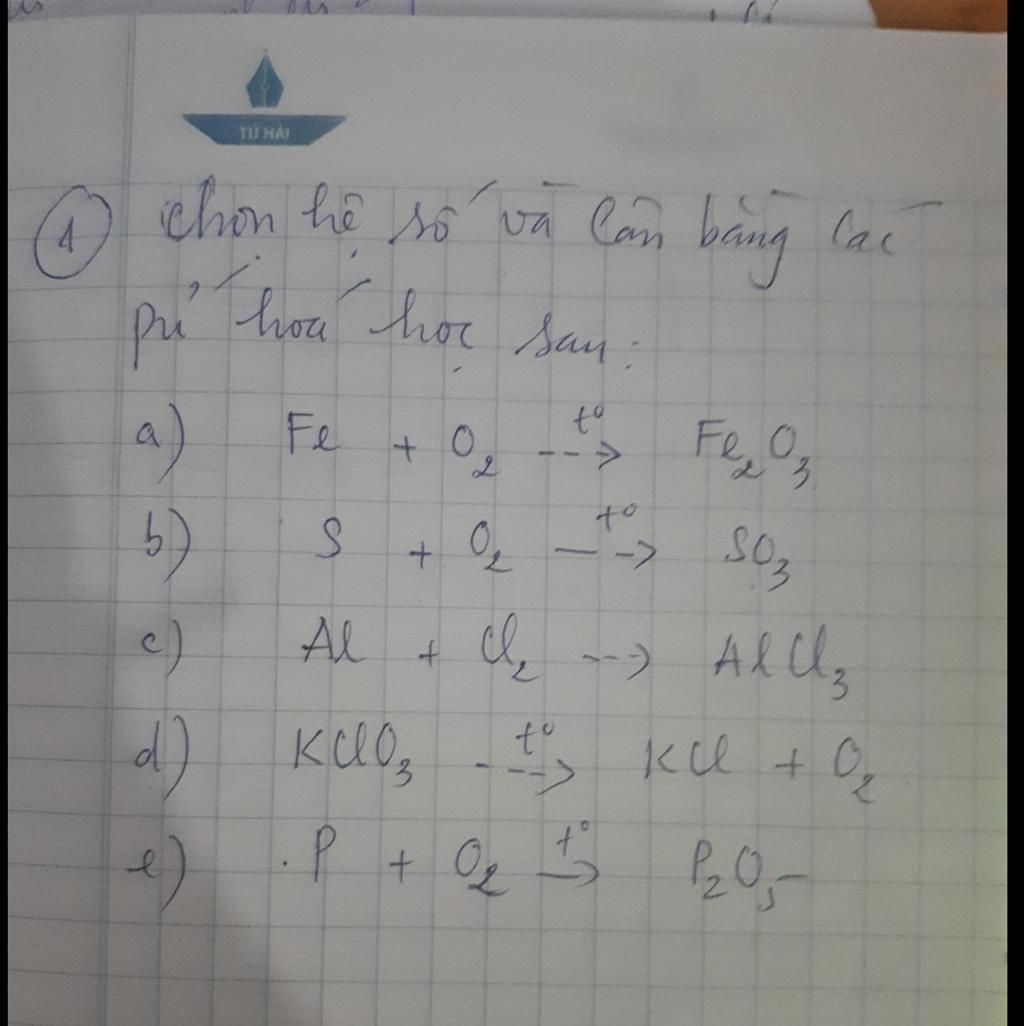 TỨ HẢI
① Chọn hệ số và cân bằng các
pứ hoá học sau:
a) Fe + O₂ --t°--> Fe₂O₃
b) S + O₂ --t°--> SO₃
c) Al + Cl₂ --> AlCl₃
d) KClO₃ --t°--> KCl + O₂
e) P + O₂ --t°--> P₂O₅